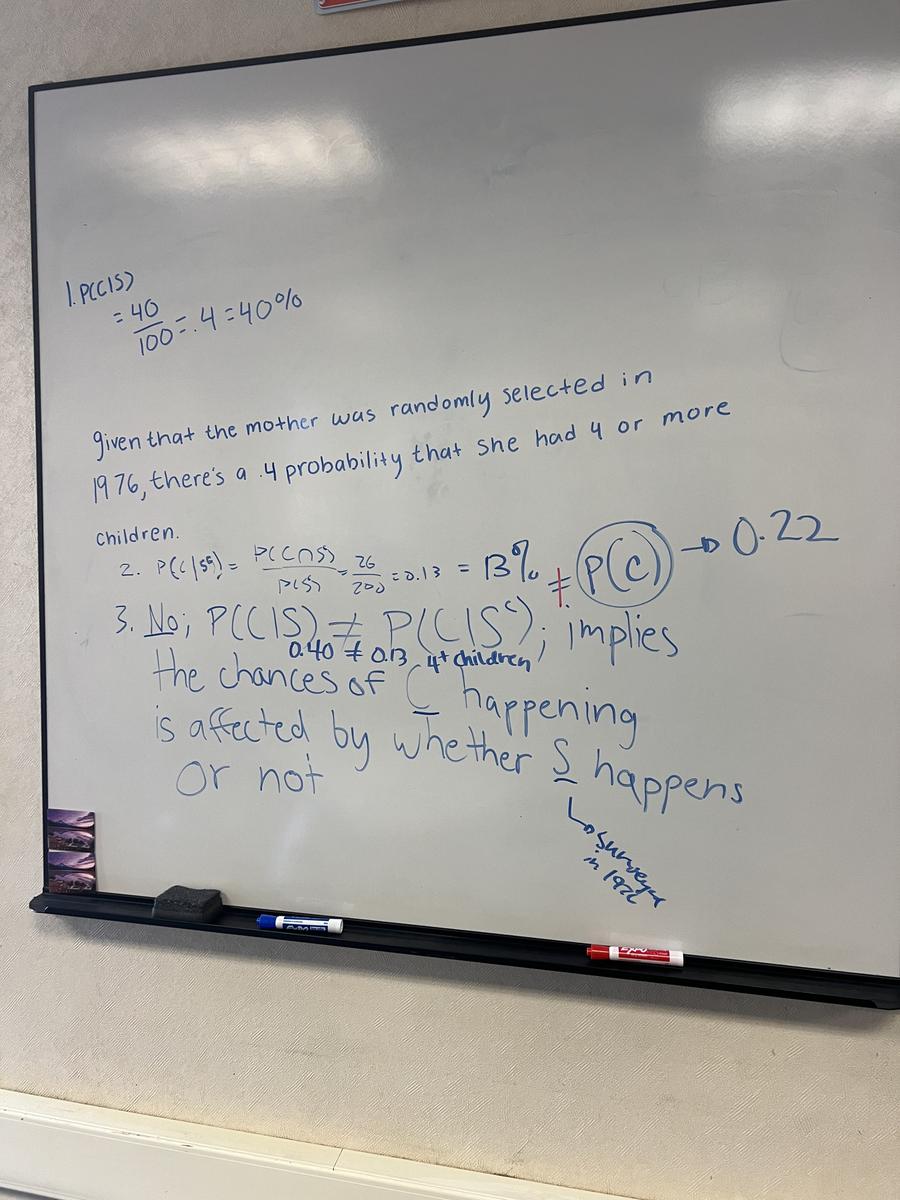 1. P(C|S)
= 40/100 = .4 = 40%
given that the mother was randomly selected in
1976, there's a .4 probability that she had 4 or more
children.
2. P(C|Sᶜ) = P(C∩Sᶜ)/P(Sᶜ) = 26/200 = 0.13 = 13% ≠ P(C) → 0.22
3. No; P(C|S) ≠ P(C|Sᶜ); implies
0.40 ≠ 0.13 4+ children
the chances of C happening
is affected by whether S happens
or not
↳ surveyed
in
EXPO